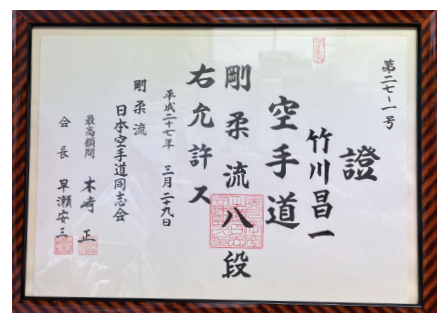 第二七ー一号
證
竹川昌一
空手道
剛柔流八段
右允許ス
平成二十七年 三月二十九日
剛柔流
日本空手道同志会
最高顧問 木崎 正
会長 早瀬安三